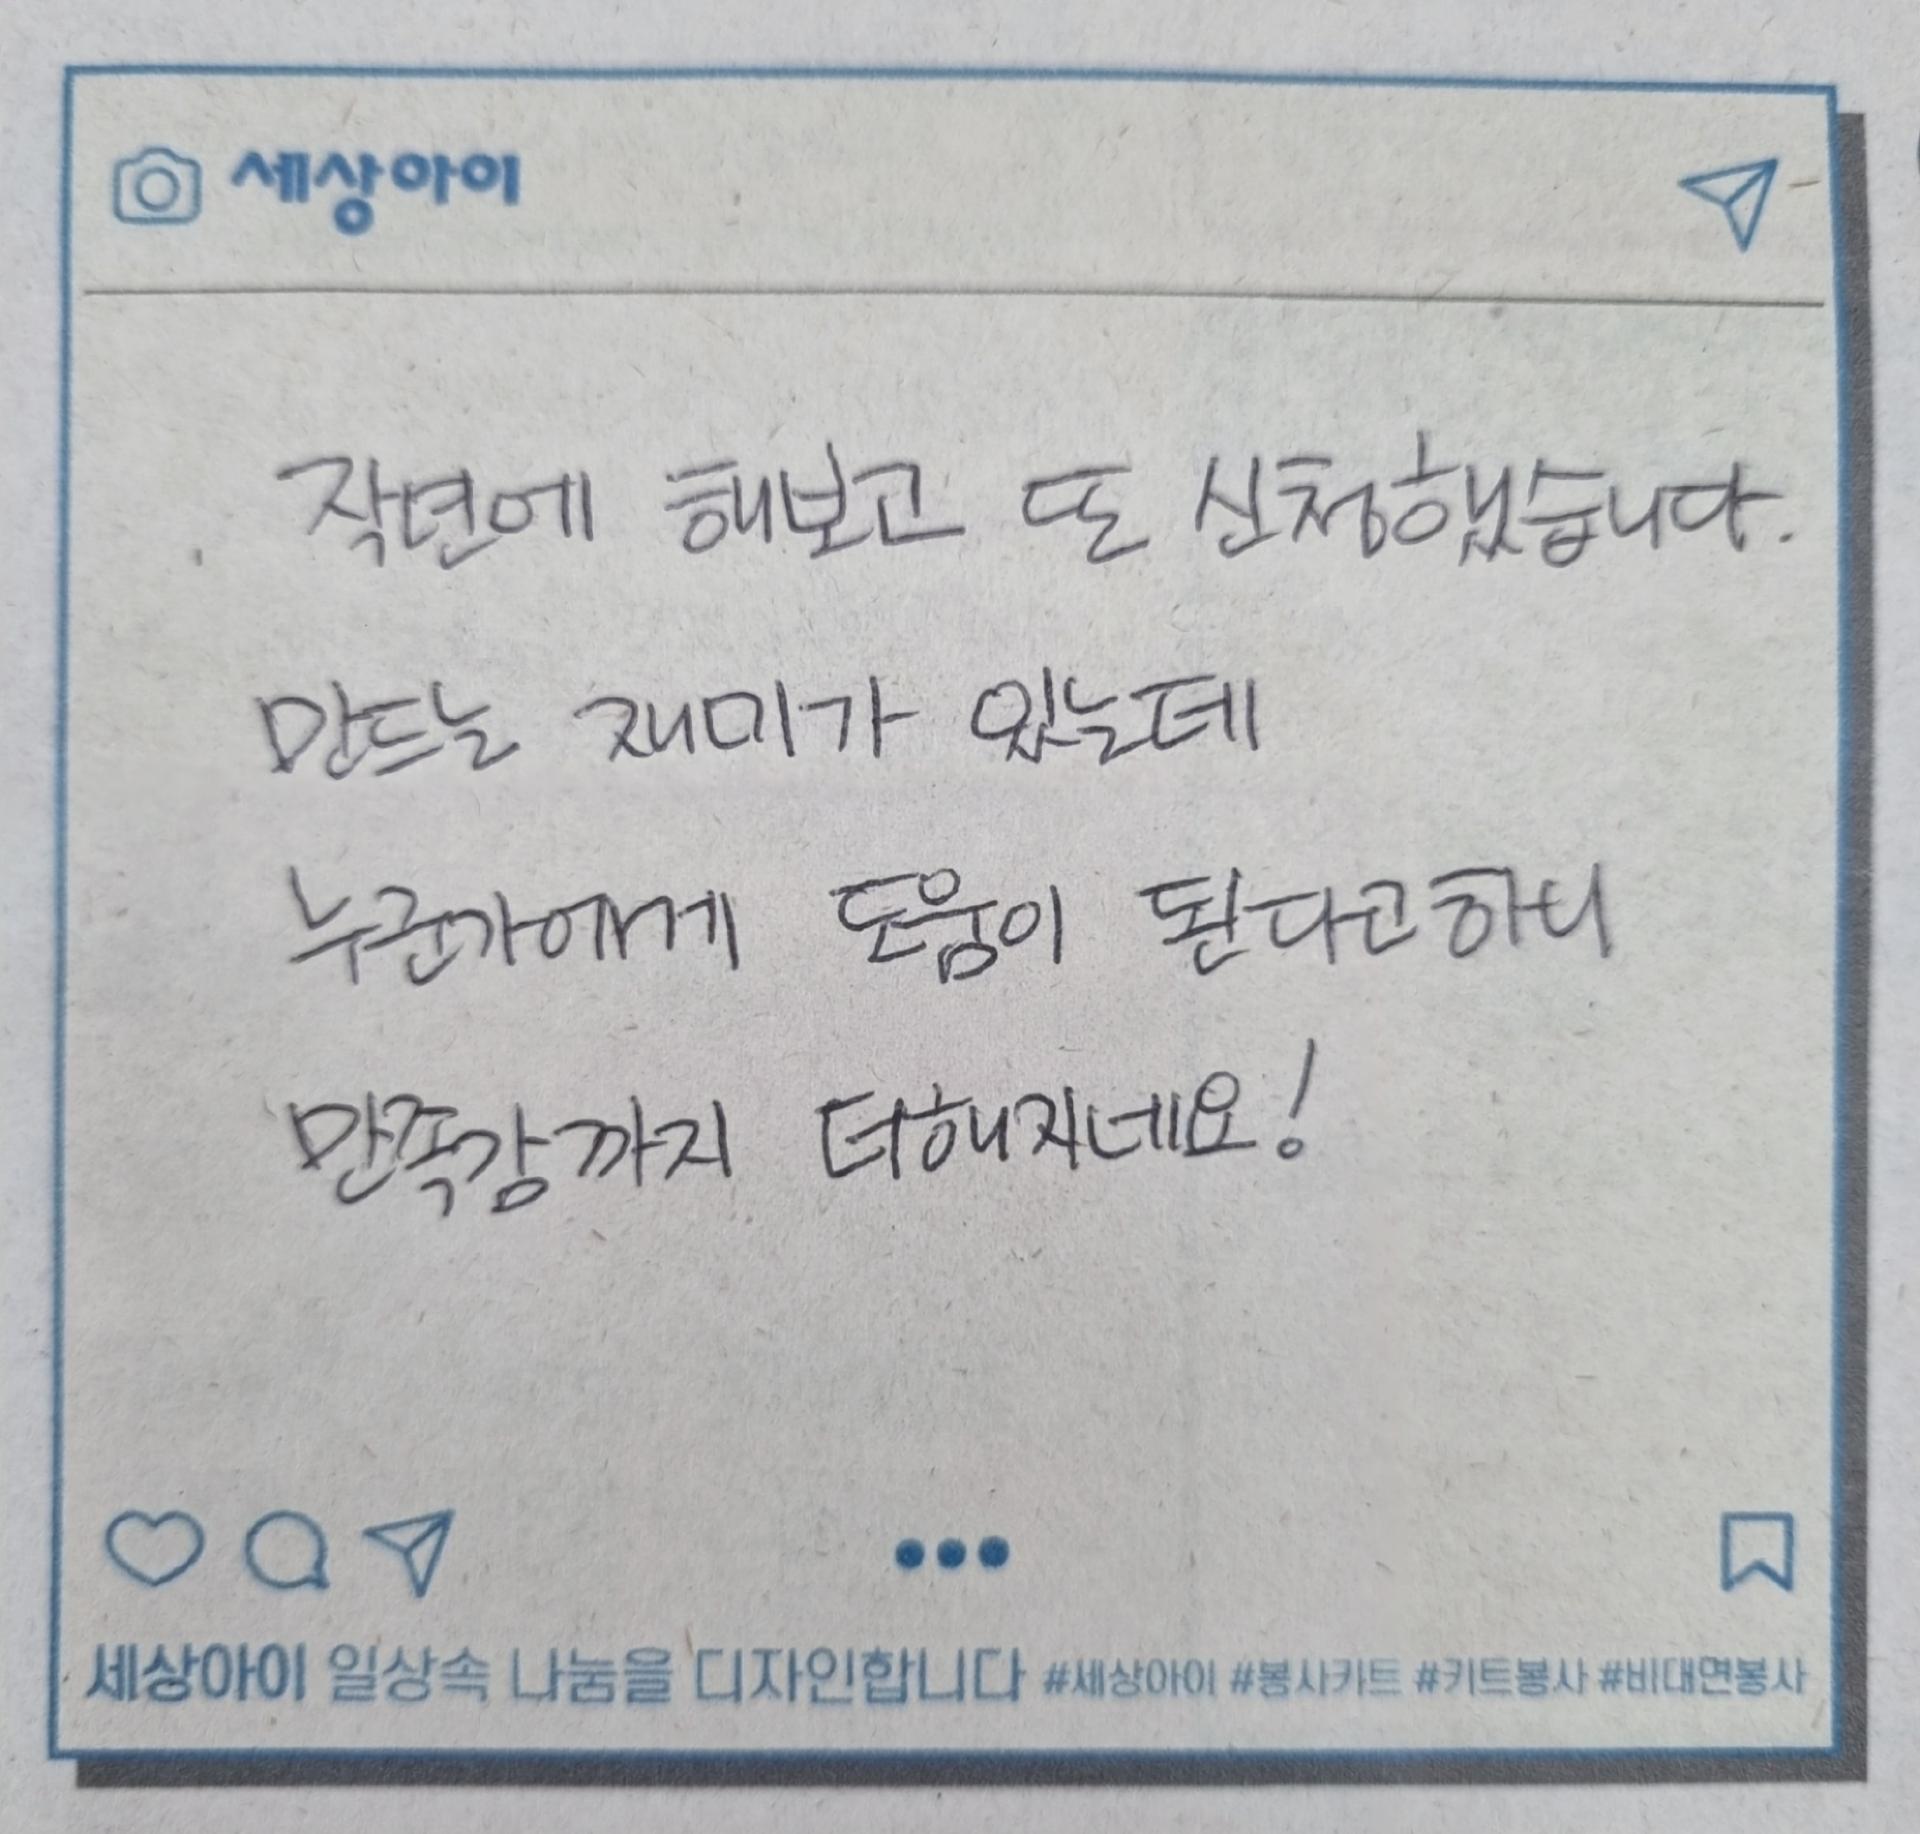 세상아이
작년에 해보고 또 신청했습니다.
만드는 재미가 있는데
누군가에게 도움이 된다고하니
만족감까지 더해지네요!
세상아이 일상속 나눔을 디자인합니다 #세상아이 #봉사키트 #키트봉사 #비대면봉사